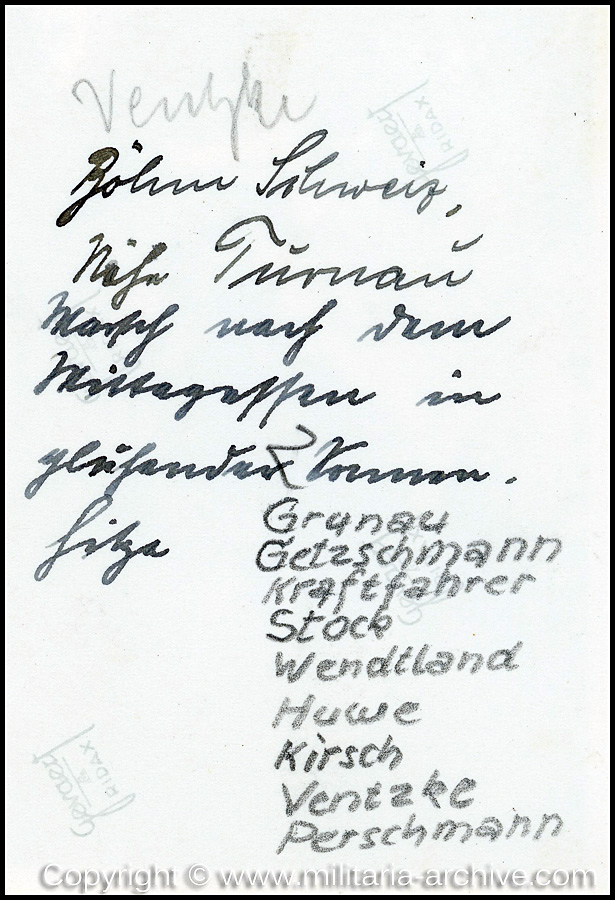 Ventzke
Böhm Schweiz,
Nähe Turnau
Marsch nach dem
Mittagessen in
glühender Sonnen-
hitze
Grunau
Getzschmann
Kraftfahrer
Stock
Wendtland
Huwe
Kirsch
Ventzke
Perschmann
Gevaert
RIDAX
Gevaert
RIDAX
Copyright © www.militaria-archive.com